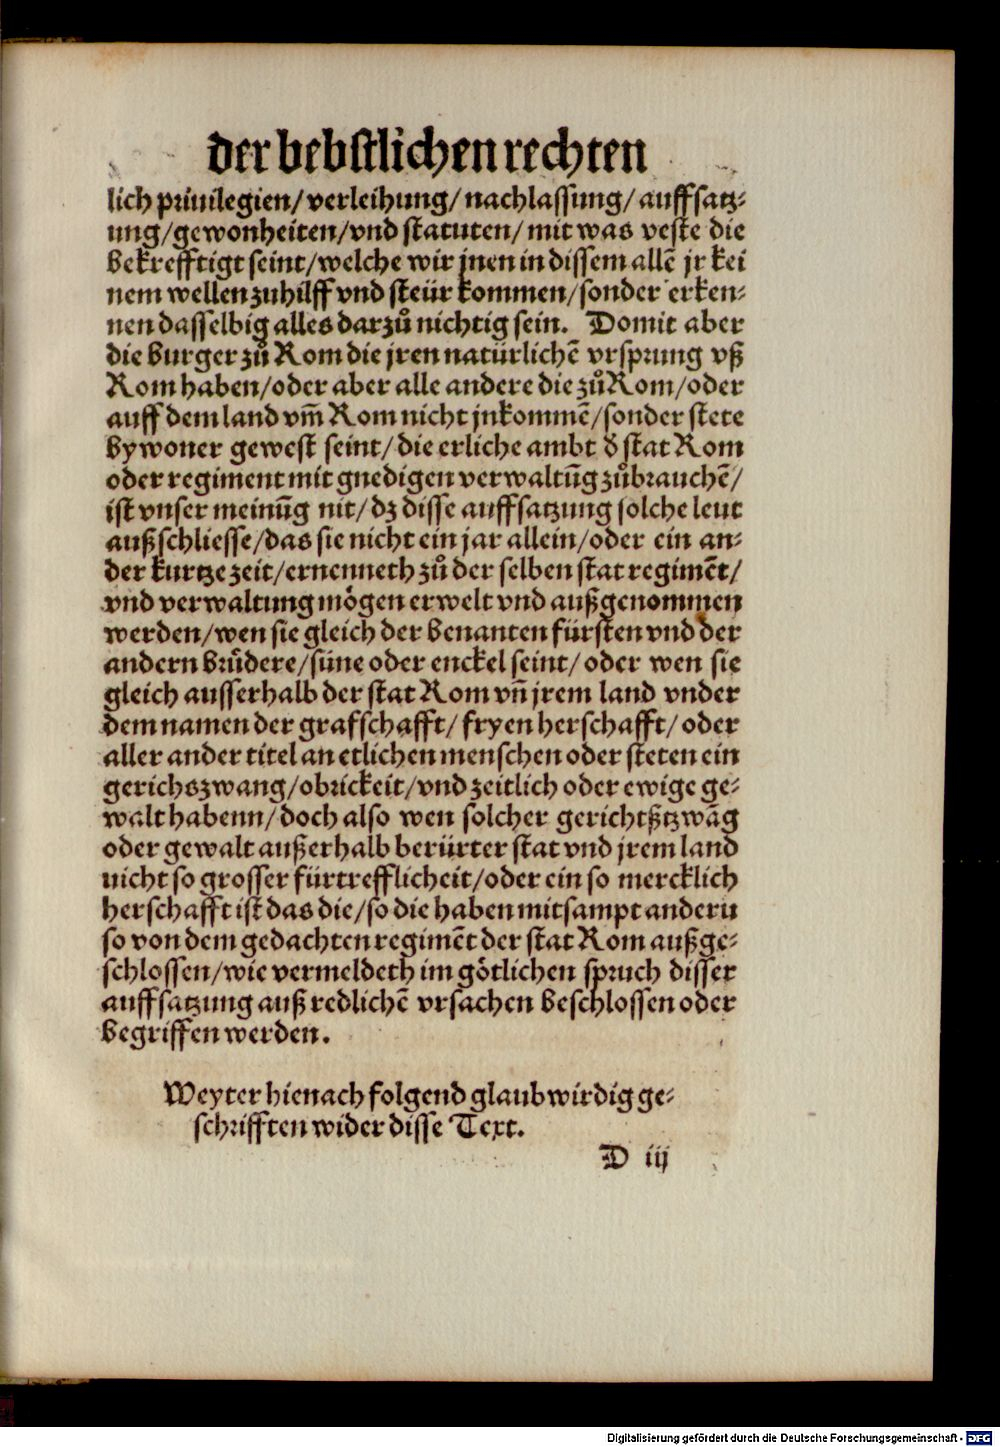 der bebstlichen rechten
lich priuilegien/ verleihung/ nachlassung/ auffsatz⸗
ung/ gewonheiten/ vnd statuten/ mit was veste die
bekrefftigt seint/ welche wir jnen in dissem allē jr kei
nem wellen zuhilff vnd steür kommen/ sonder erken⸗
nen dasselbig alles darzů nichtig sein. Domit aber
die burger zů Rom die jren natürlichē vrsprung vß
Rom haben/ oder aber alle andere die zů Rom/ oder
auff dem land vm̄ Rom nicht jnkommē/ sonder stete
bywoner gewest seint/ die erliche ambt d̕ stat Rom
oder regiment mit gnedigen verwaltūg zůbrauchē/
ist vnser meinūg nit/ dz disse auffsatzung solche leut
außschliesse/ das sie nicht ein jar allein/ oder ein an⸗
der kurtze zeit/ ernenneth zů der selben stat regimēt/
vnd verwaltung mögen erwelt vnd außgenommen
werden/ wen sie gleich der benanten fürsten vnd der
andern brůdere/ süne oder enckel seint/ oder wen sie
gleich ausserhalb der stat Rom vn̄ jrem land vnder
dem namen der grafschafft/ fryen herschafft/ oder
aller ander titel an etlichen menschen oder steten ein
gerichszwang/ obrickeit/ vnd zeitlich oder ewige ge⸗
walt habenn/ doch also wen solcher gerichtßtzwāg
oder gewalt außerhalb berürter stat vnd jrem land
nicht so grosser fürtrefflicheit/ oder ein so mercklich
herschafft ist das die/ so die haben mitsampt andern
so von dem gedachten regimēt der stat Rom außge⸗
schlossen/ wie vermeldeth im götlichen spruch disser
auffsatzung auß redlichē vrsachen beschlossen oder
begriffen werden.
Weyter hienach folgend glaubwirdig ge⸗
schrifften wider disse Text.
D iij
Digitalisierung gefördert durch die Deutsche Forschungsgemeinschaft - DFG